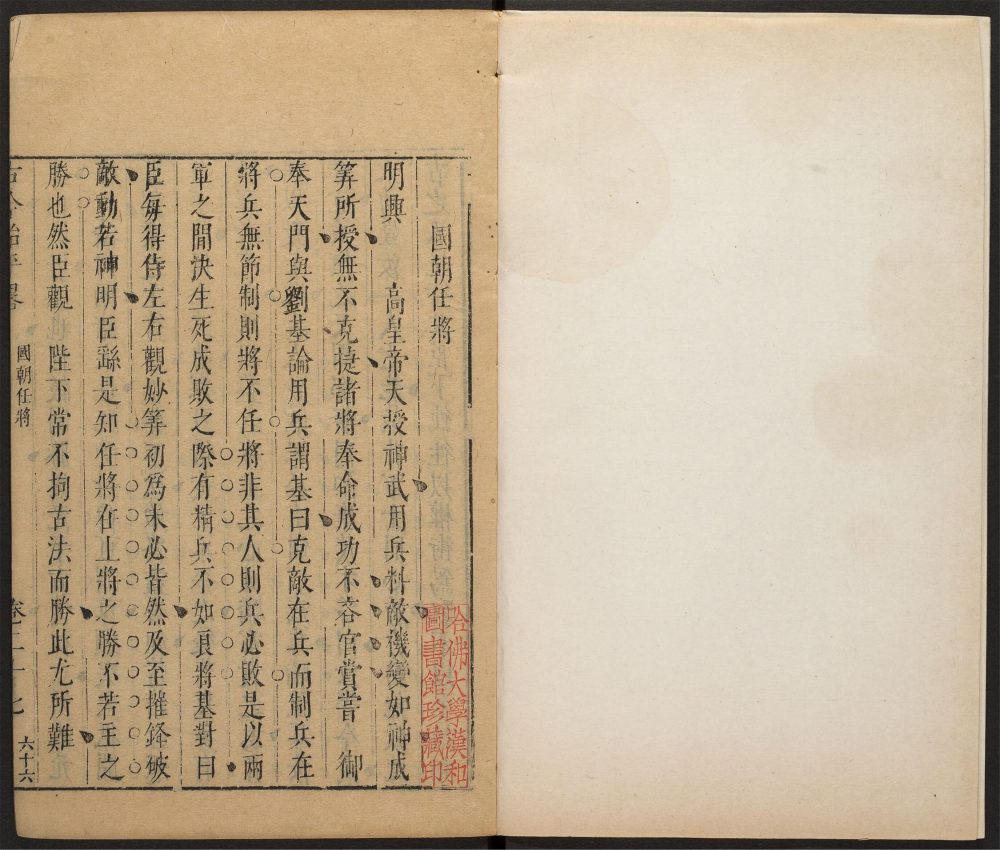 國朝任將
明興　高皇帝天授神武用兵料敵機變如神成
筭所授無不克捷諸將奉命成功不吝官賞嘗　御
奉天門與劉基論用兵謂基曰克敵在兵而制兵在
將兵無節制則將不任將非其人則兵必敗是以兩
軍之間決生死成敗之際有精兵不如良將基對曰
臣每得侍左右觀妙筭初爲未必皆然及至摧鋒破
敵動若神明臣繇是知任將在上將之勝不若主之
勝也然臣觀　陛下常不拘古法而勝此尤所難
古今治平畧
國朝任將
卷二十七
六十六
哈佛大學漢和
圖書館珍藏印